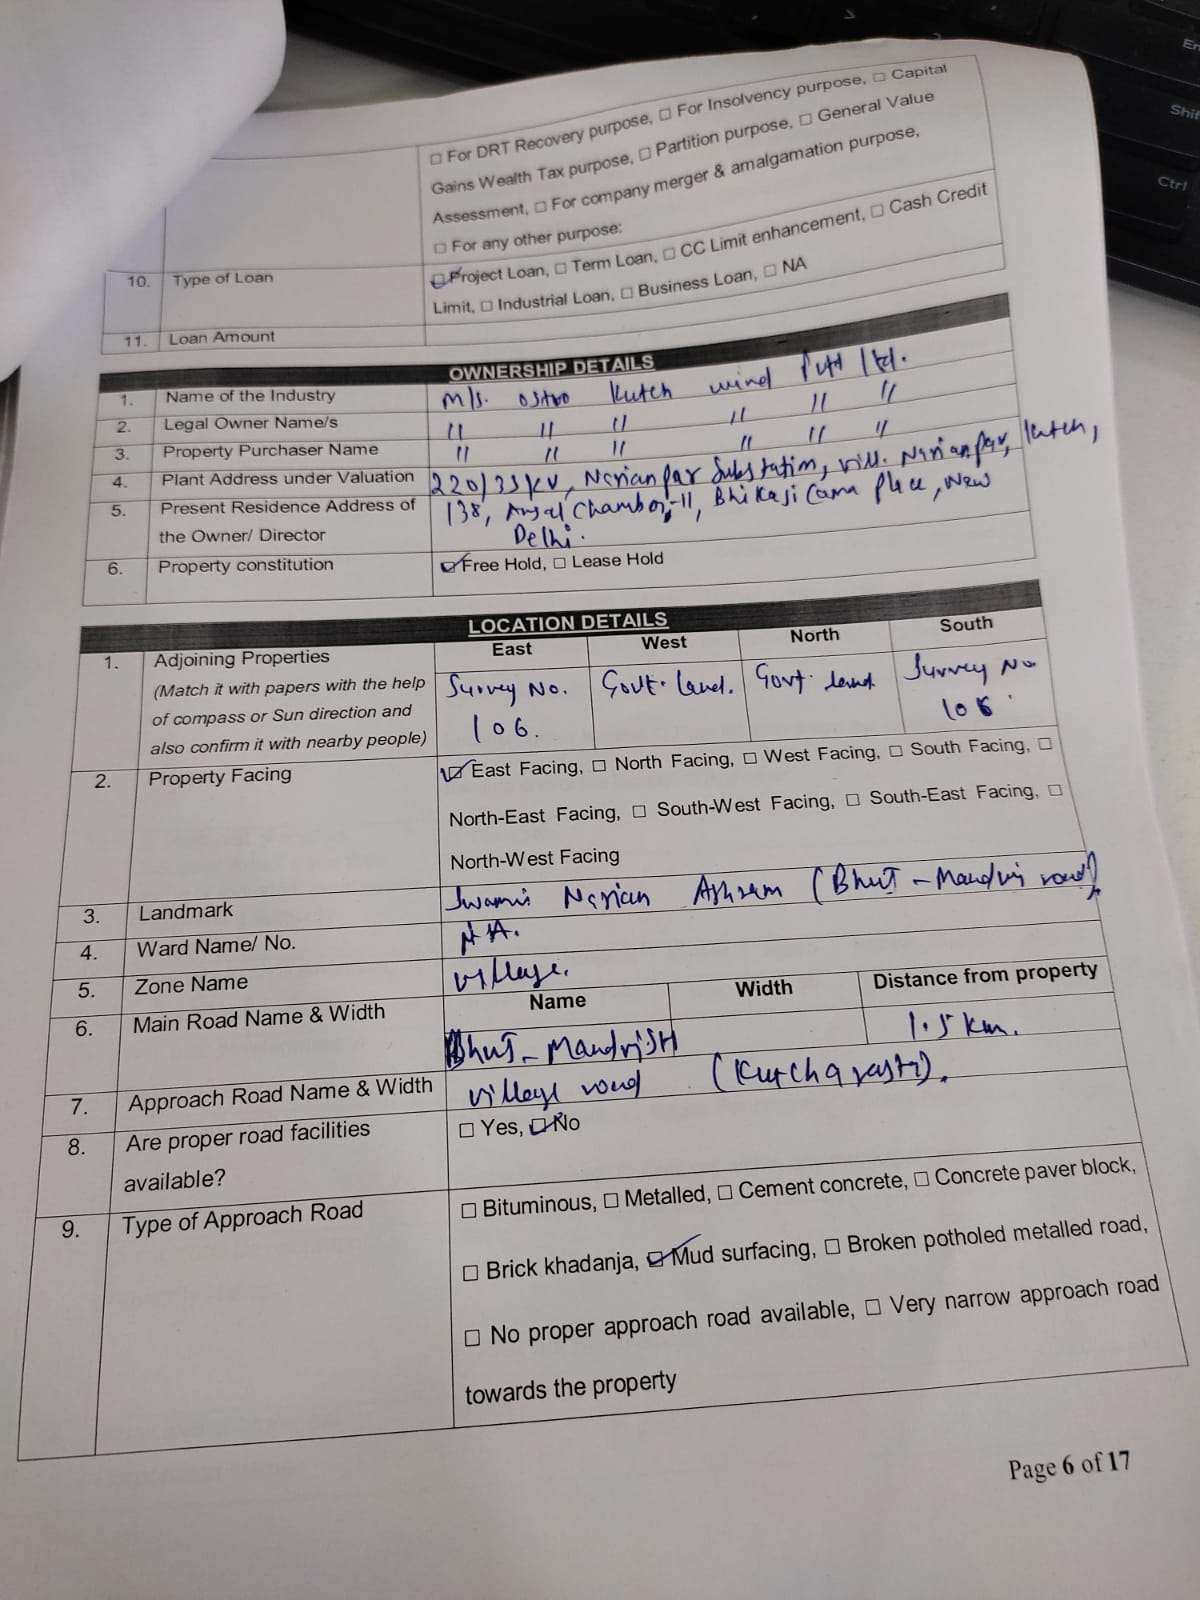 ☐ For DRT Recovery purpose, ☐ For Insolvency purpose, ☐ Capital
Gains Wealth Tax purpose, ☐ Partition purpose, ☐ General Value
Assessment, ☐ For company merger & amalgamation purpose,
☐ For any other purpose:
10. Type of Loan ☑ Project Loan, ☐ Term Loan, ☐ CC Limit enhancement, ☐ Cash Credit
Limit, ☐ Industrial Loan, ☐ Business Loan, ☐ NA
11. Loan Amount
OWNERSHIP DETAILS
1. Name of the Industry M/s. Ostro Kutch wind Pvt ltd.
2. Legal Owner Name/s " " " " " "
3. Property Purchaser Name " " " " " "
4. Plant Address under Valuation 220/33KV, Narianpar Substation, vill. Narianpar, Kutch,
5. Present Residence Address of 138, Ansal Chamber-II, Bhikaji Cama Place, New
the Owner/ Director Delhi.
6. Property constitution ☑ Free Hold, ☐ Lease Hold
LOCATION DETAILS
1. Adjoining Properties East West North South
(Match it with papers with the help Survey No. Govt. land. Govt. land Survey No
of compass or Sun direction and 106. 106.
also confirm it with nearby people)
2. Property Facing ☑ East Facing, ☐ North Facing, ☐ West Facing, ☐ South Facing, ☐
North-East Facing, ☐ South-West Facing, ☐ South-East Facing, ☐
North-West Facing
3. Landmark Swami Narian Ashram (Bhuj - Mandvi road)
4. Ward Name/ No. NA.
5. Zone Name village.
6. Main Road Name & Width Name Width Distance from property
Bhuj - Mandvi SH 1.5 km.
7. Approach Road Name & Width village road (Kutcha rasta).
8. Are proper road facilities ☐ Yes, ☑ No
available?
9. Type of Approach Road ☐ Bituminous, ☐ Metalled, ☐ Cement concrete, ☐ Concrete paver block,
☐ Brick khadanja, ☑ Mud surfacing, ☐ Broken potholed metalled road,
☐ No proper approach road available, ☐ Very narrow approach road
towards the property
Page 6 of 17
En
Shif
Ctrl